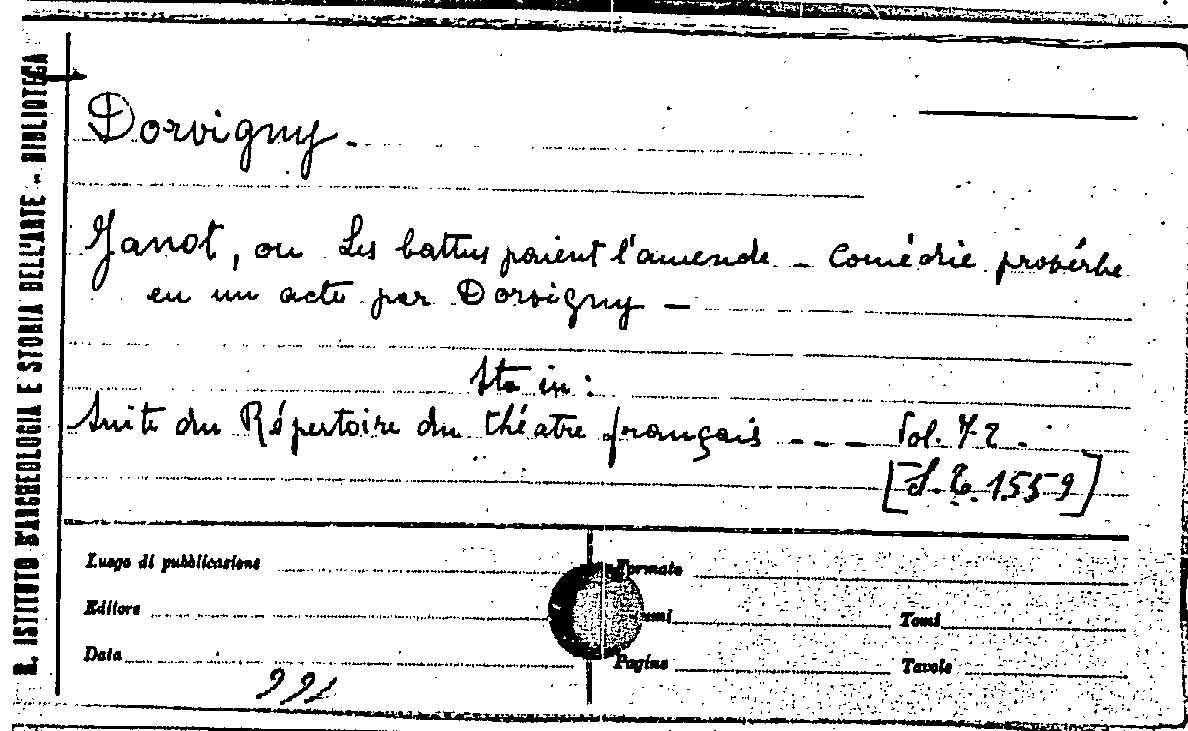 R. ISTITUTO D'ARCHEOLOGIA E STORIA DELL'ARTE - BIBLIOTECA
Dorvigny.
Janot, ou Les battus paient l'amende - Comédie provérbe
en un acte par Dorvigny -
Sta in:
Suite du Répertoire du théatre français - - - Vol. 72.
[S. T. 1559]
Luogo di pubblicazione Formato
Editore Tomi
Data Pagine Tavole